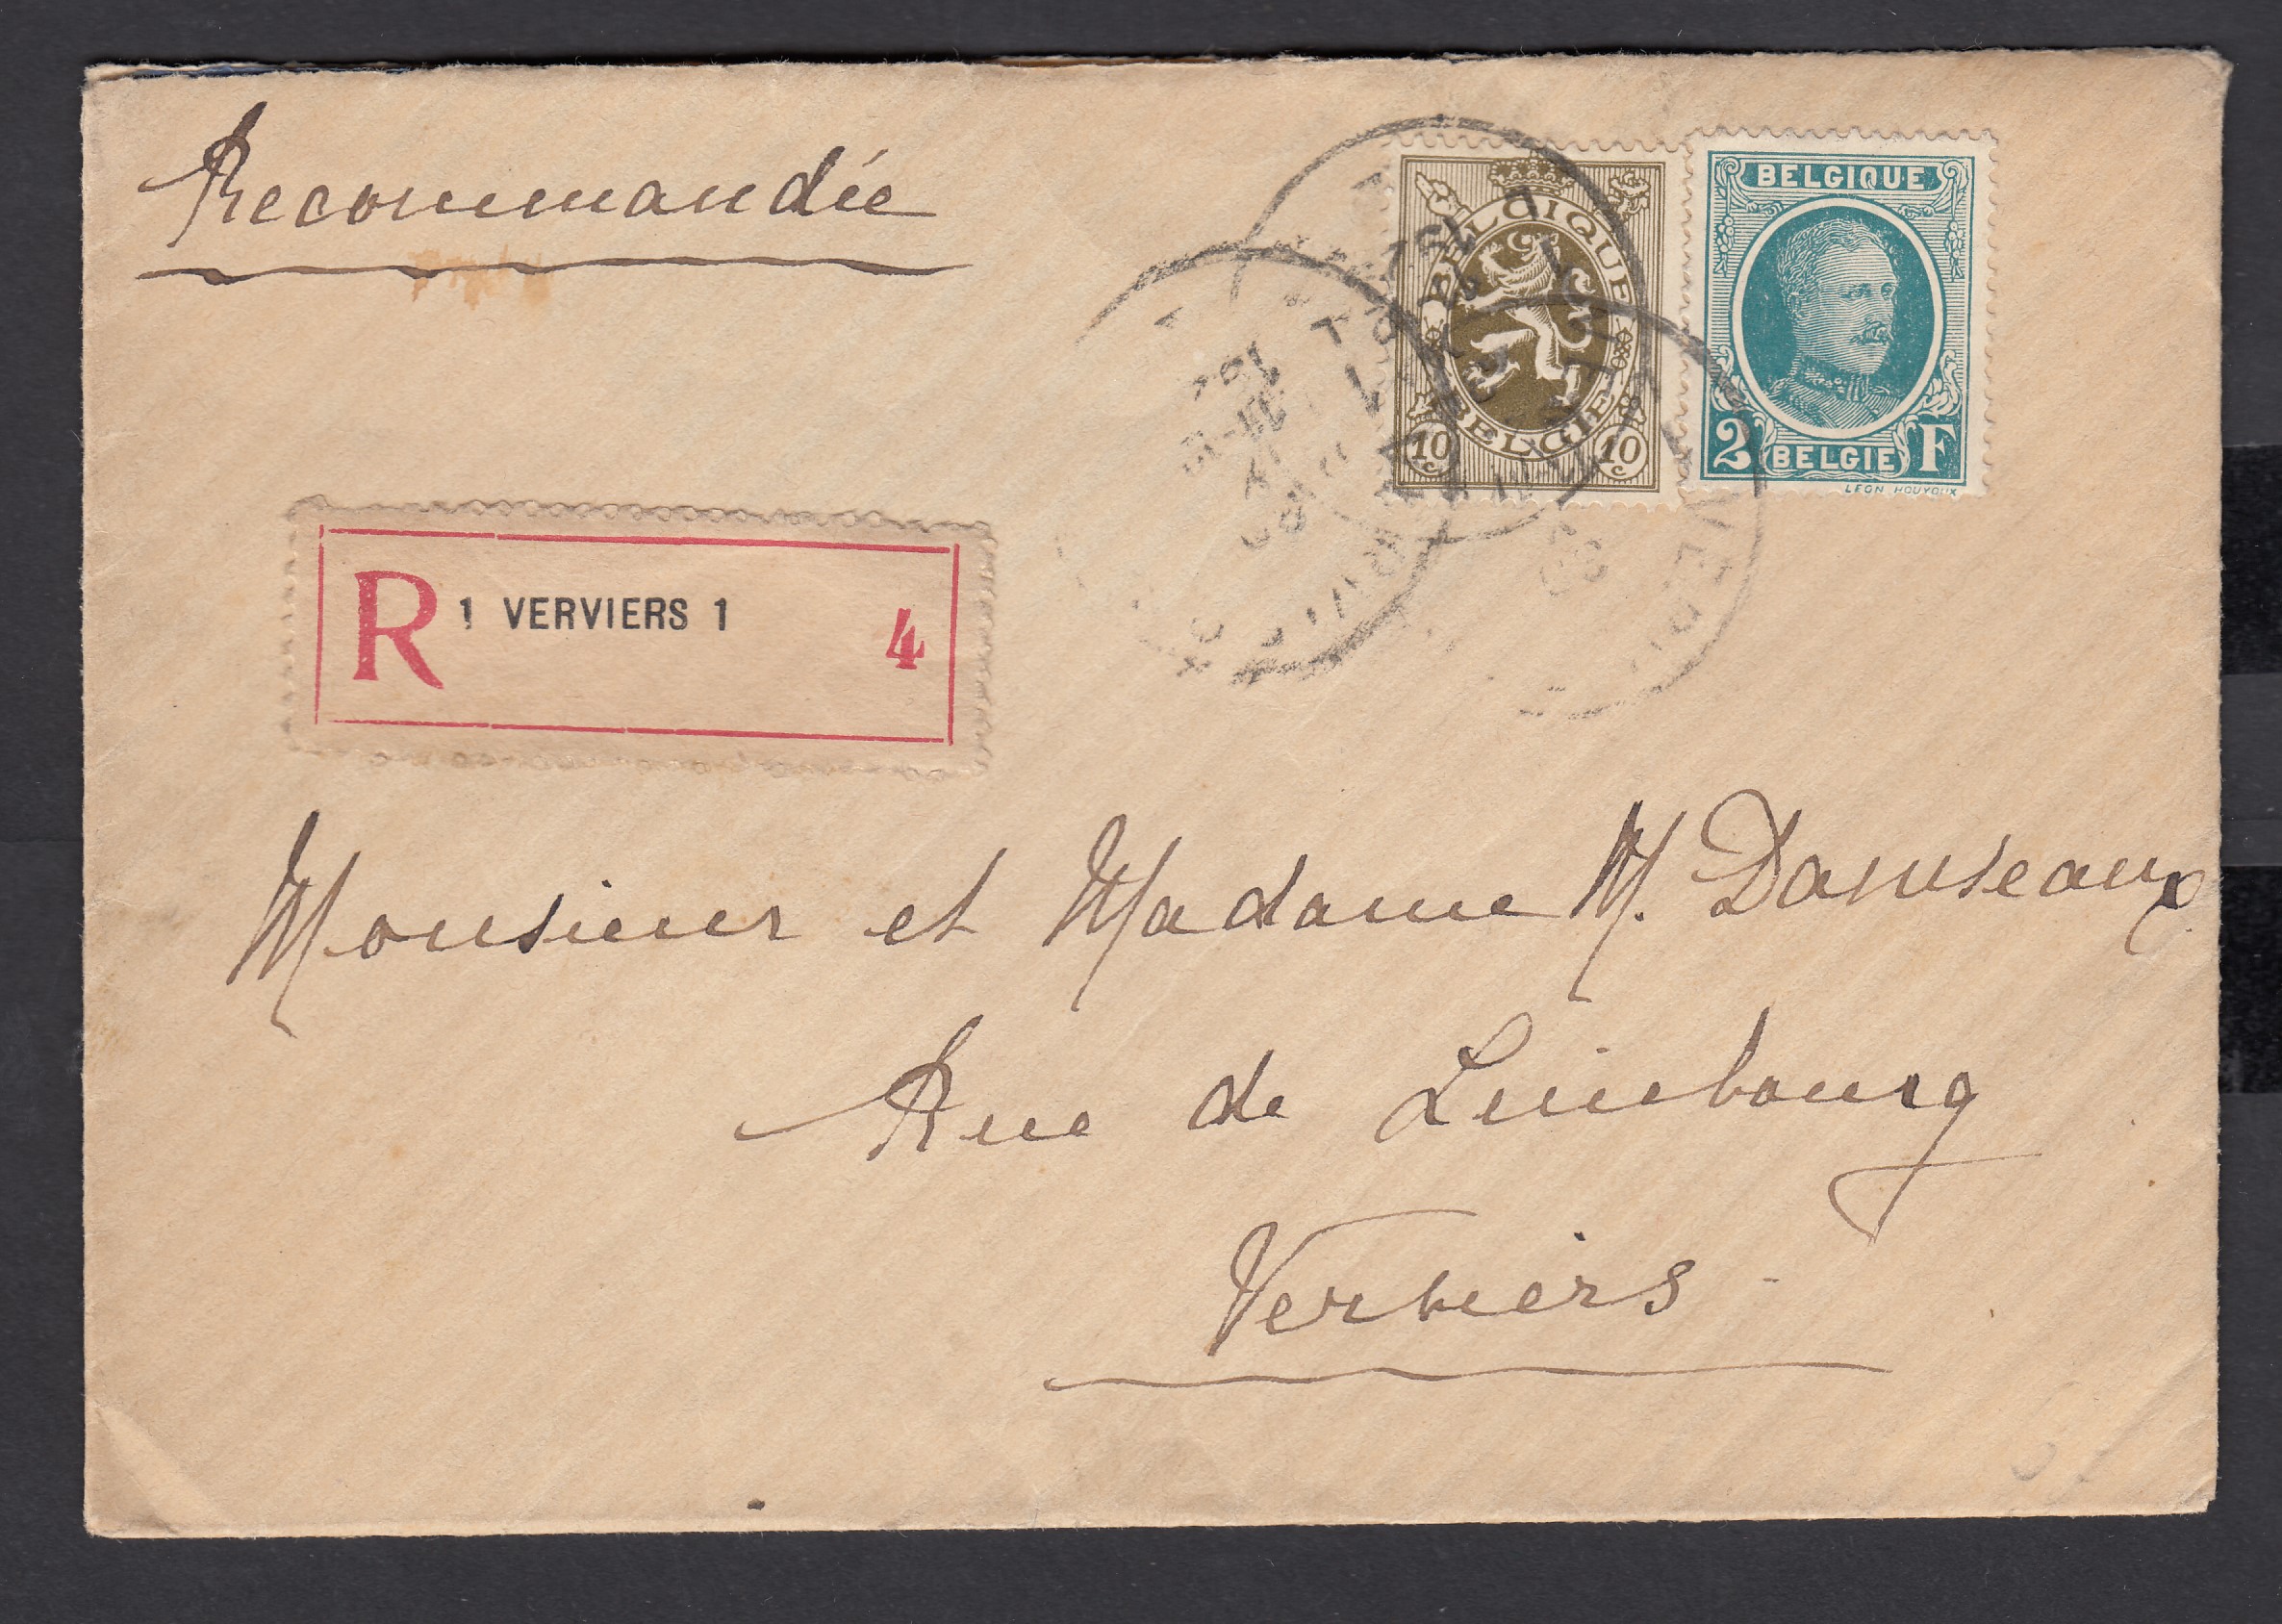 Recommandée
BELGIQUE
BELGIE
10c 10c
BELGIQUE
2 BELGIE F
LEON HOUYOUX
R 1 VERVIERS 1 4
Monsieur et Madame M. Damseaux
Rue de Limbourg
Verviers